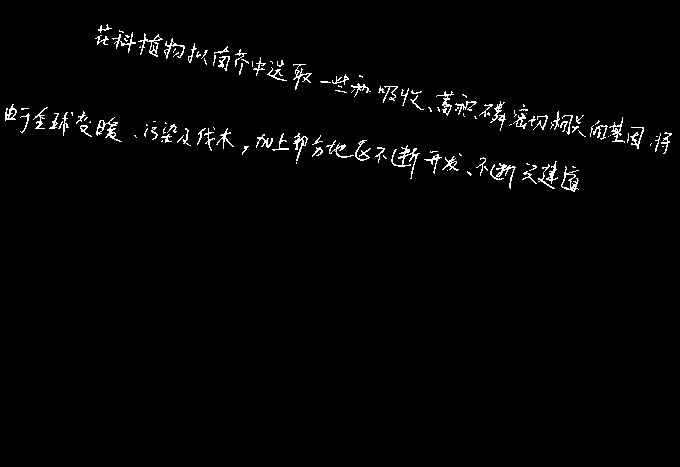 花科植物拟南芥中选取一些和吸收、蓄积磷密切相关的基因,将
由于全球变暖、污染及伐木,加上部分地区不断开发、不断灭建道